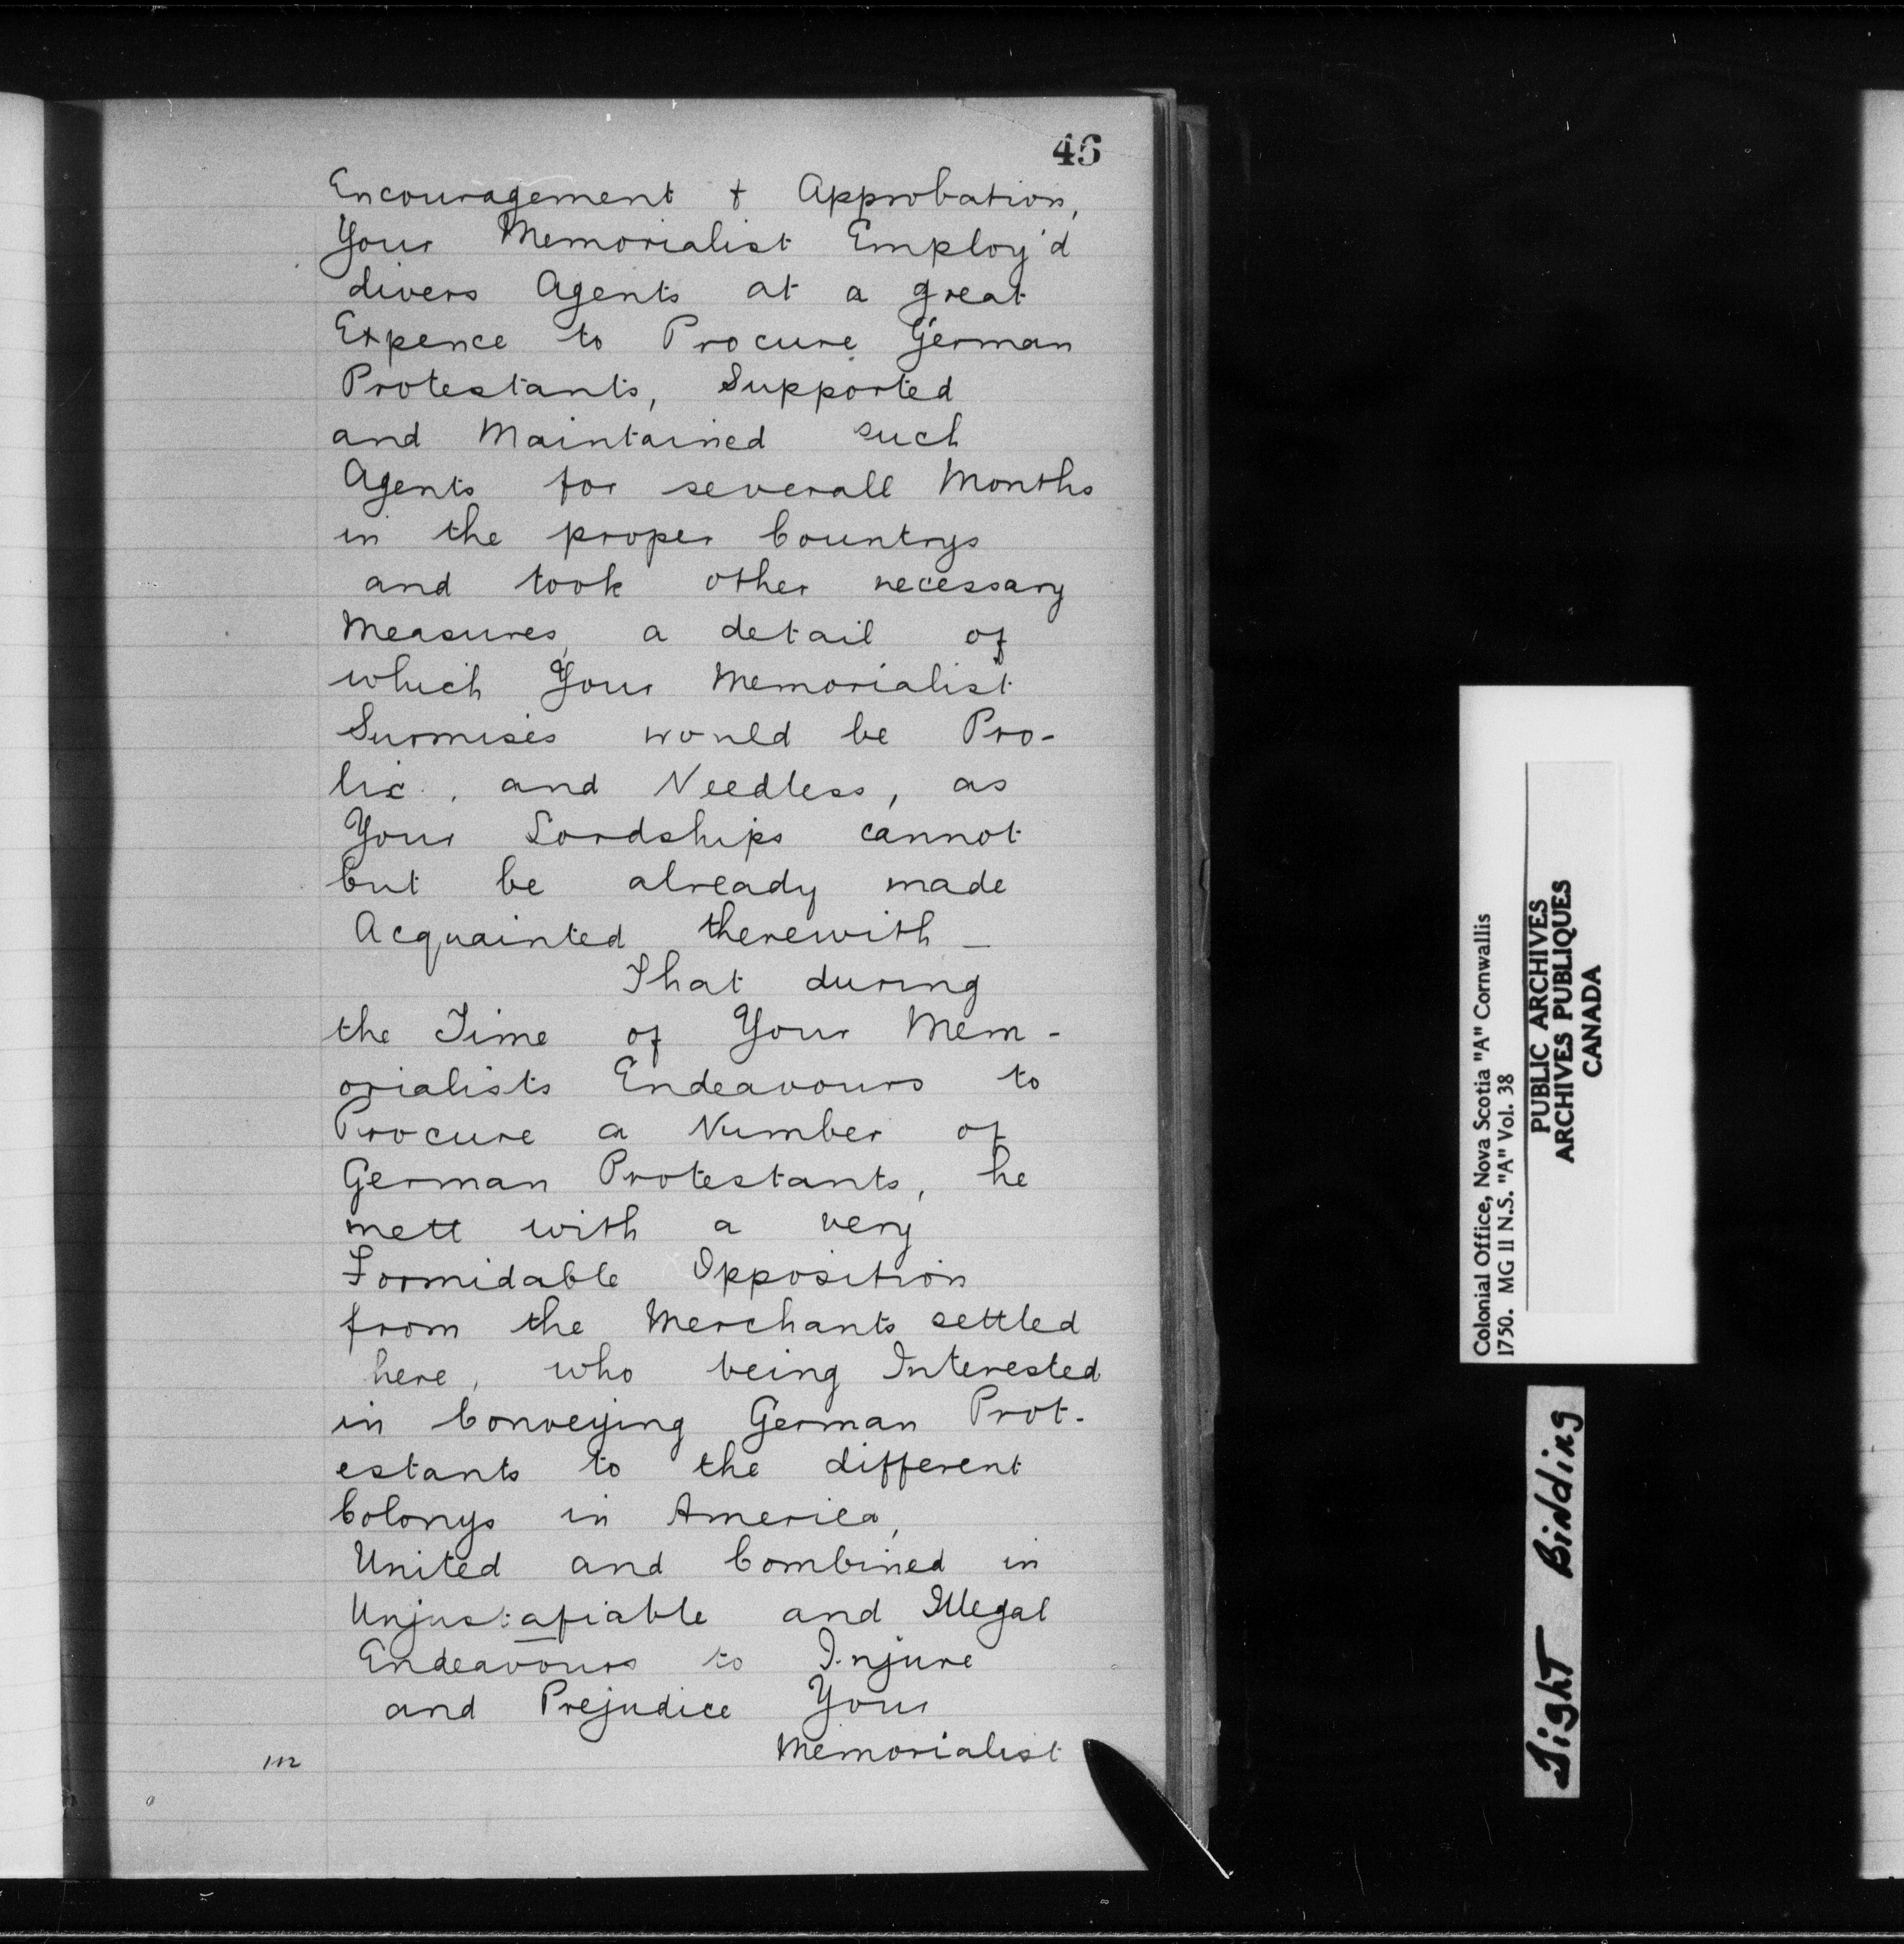 46
Encouragement & Approbation,
Your Memorialist Employ'd
divers Agents at a great
Expence to Procure German
Protestants, Supported
and Maintained such
Agents for severall Months
in the proper Countrys
and took other necessary
Measures, a detail of
which Your Memorialist
Surmises would be Pro-
lix, and Needless, as
Your Lordships cannot
but be already made
Acquainted therewith _
That during
the Time of Your Mem-
orialists Endeavours to
Procure a Number of
German Protestants, he
mett with a very
Formidable Opposition
from the Merchants settled
here, who being Interested
in Conveying German Prot-
estants to the different
Colonys in America,
United and Combined in
Unjustafiable and Illegal
Endeavours to Injure
and Prejudice Your
Memorialist
Colonial Office, Nova Scotia "A" Cornwallis
1750. MG 11 N.S. "A" Vol. 38
PUBLIC ARCHIVES
ARCHIVES PUBLIQUES
CANADA
Tight Binding